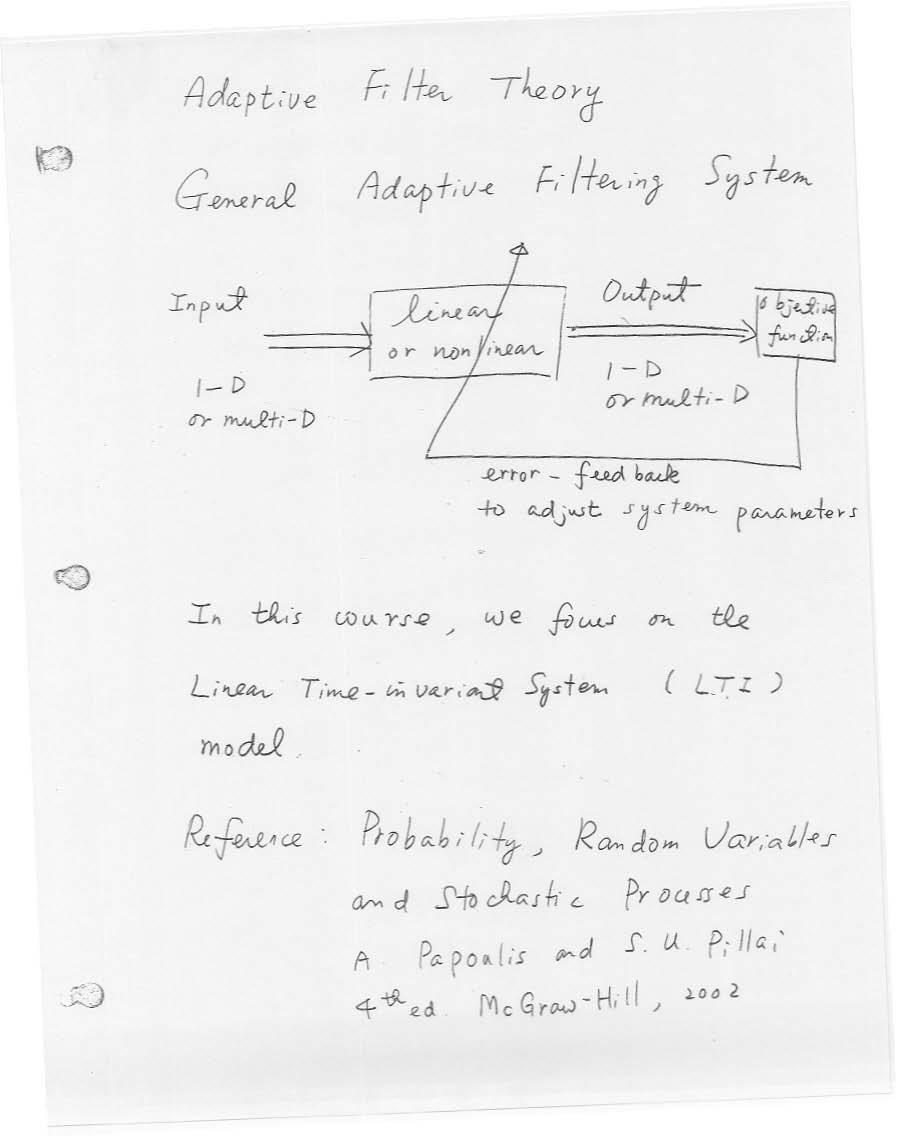 Adaptive Filter Theory
General Adaptive Filtering System
Input
1-D
or multi-D
linear
or nonlinear
Output
1-D
or multi-D
objective
function
error - feedback
to adjust system parameters
In this course, we focus on the
Linear Time-invariant System (L.T.I)
model.
Reference: Probability, Random Variables
and Stochastic Processes
A. Papoulis and S. U. Pillai
4th ed. McGraw-Hill, 2002